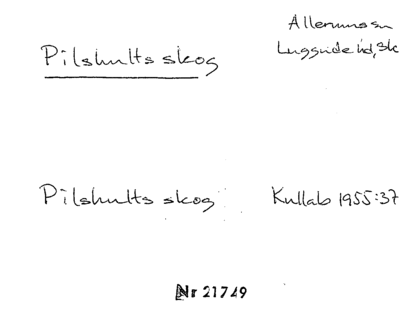 Pilshults skog
Allerums sn
Luggude hd, Sk
Pilshults skog Kullab 1955:37
Nr 21749